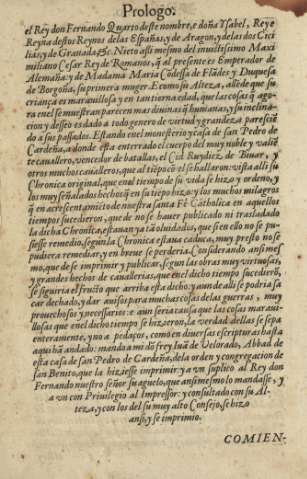 Prologo.
el Rey don Fernando Quarto deste nombre, e doña Ysabel, Rey e
Reyna destos Reynos delas Españas, y de Aragon, y delas dos Ceci
lias, y de Granada &c. Nieto assi mesmo del inuictissimo Maxi
miliano Cesar Rey de Romanos, q̃ al presente es Emperador de
Alemaña: y de Madama Maria Cõdessa de Flãdes y Duquesa
de Borgoña, su primera muger. E como su Alteza, allẽde que su
criança es marauillosa y en tan tierna edad, que las cosas q̃ ago-
ra en el se muestran parecen mas diuinas q̃ humanas, y su inclina-
cion y desseo es dado a todo genero de virtud y grandeza paresciẽ
do a sus passados. Estando en el monesterio y casa de san Pedro de
Cardeña, a donde esta enterrado el cuerpo del muy noble y valiẽ
te cauallero, vencedor de batallas, el Cid Ruydiez de Biuar, y
otros muchos caualleros, que al tiẽpo cõ el se hallaron: vista alli su
Chronica original, que en el tiempo de su vida se hizo y ordeno, y
los muy señalados hechos q̃ en su tiẽpo hizo: y los muchos milagros
q̃ en acrescentamiẽto de nuestra Santa Fè Catholica en aquellos
tiempos sucedieron, que de no se hauer publicado ni trasladado
la dicha Chronica, estauan ya tã oluidados, que si en ello no se pu-
siesse remedio, segun la Chronica estaua caduca, muy presto no se
pudiera remediar, y en breue se perderia. Considerando ansi mes
mo, que de se imprimir y publicar, segun las obras muy virtuosas,
y grandes hechos de cauallerias, que en el dicho tiempo sucediero,
se siguiria el fructo que arriba esta dicho: y aun de alli se podria sa
car dechado, y dar auisos para muchas cosas delas guerras, muy
prouechosos y necessarios: e aun seria causa que las cosas maraui-
llosas que en el dicho tiempo se hizieron, la verdad dellas se sepa
enteramente, y no a pedaços, como en diuersas escripturas hasta
aqui hã andado: mando a mi dõ frey Iuã de Velorado, Abbad de
esta casa de san Pedro de Cardeña, dela orden y congregacion de
san Benito, que la hiziesse imprimir: y a vn suplico al Rey don
Fernando nuestro señor su aguelo, que ansi mesmo lo mandasse, y
a vn con Priuilegio al Impressor: y consultado con su Al-
teza, y con los del su muy alto Consejo, se hizo
ansi, y se imprimio.
COMIEN-